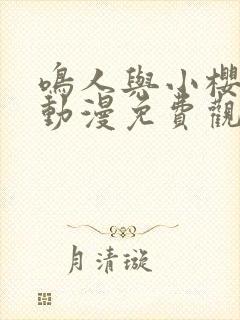 鳴人與小櫻
動漫免費觀
月清璇